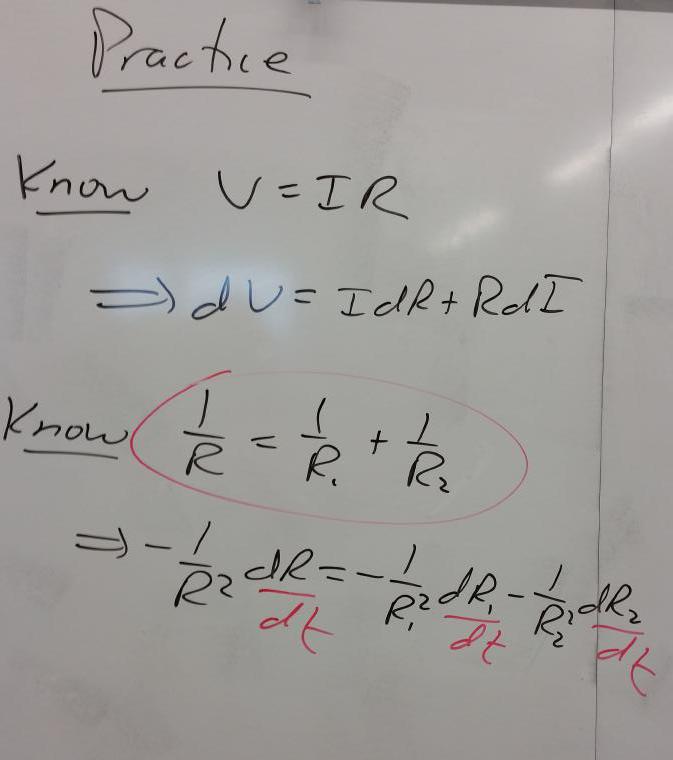 Practice
Know V = IR
⇒ dV = IdR + RdI
Know 1/R = 1/R₁ + 1/R₂
⇒ -1/R² dR/dt = -1/R₁² dR₁/dt - 1/R₂² dR₂/dt